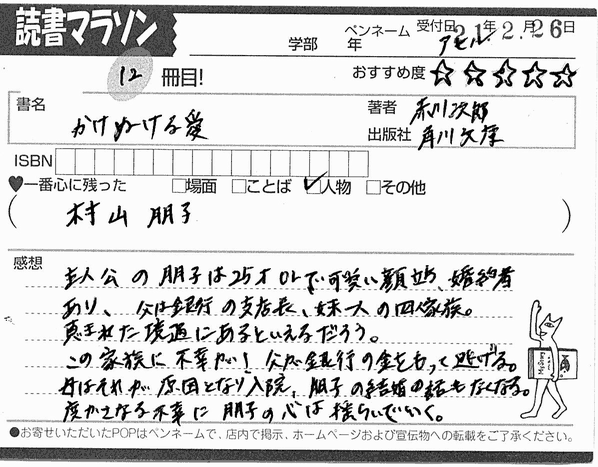 読書マラソン
学部 年
ペンネーム アセル
受付日 21年2.月26日
12 冊目!
おすすめ度 ☆☆☆☆☆
書名 かけぬける愛
著者 赤川次郎
出版社 角川文庫
ISBN
♥一番心に残った □場面 □ことば ☑人物 □その他
(村山 朋子)
感想
主人公の朋子は25才OLで可愛い顔立ち、婚約者
あり、父は銀行の支店長、妹一人の四人家族。
恵まれた境遇にあるといえるだろう。
この家族に不幸が! 父が銀行の金をもって逃げる。
母はそれが原因となり入院、朋子の結婚の話もなくなる。
度かさなる不幸に朋子の心は揺らいでいく。
Mystery
●お寄せいただいたPOPはペンネームで、店内で掲示、ホームページおよび宣伝物への転載をご了承ください。